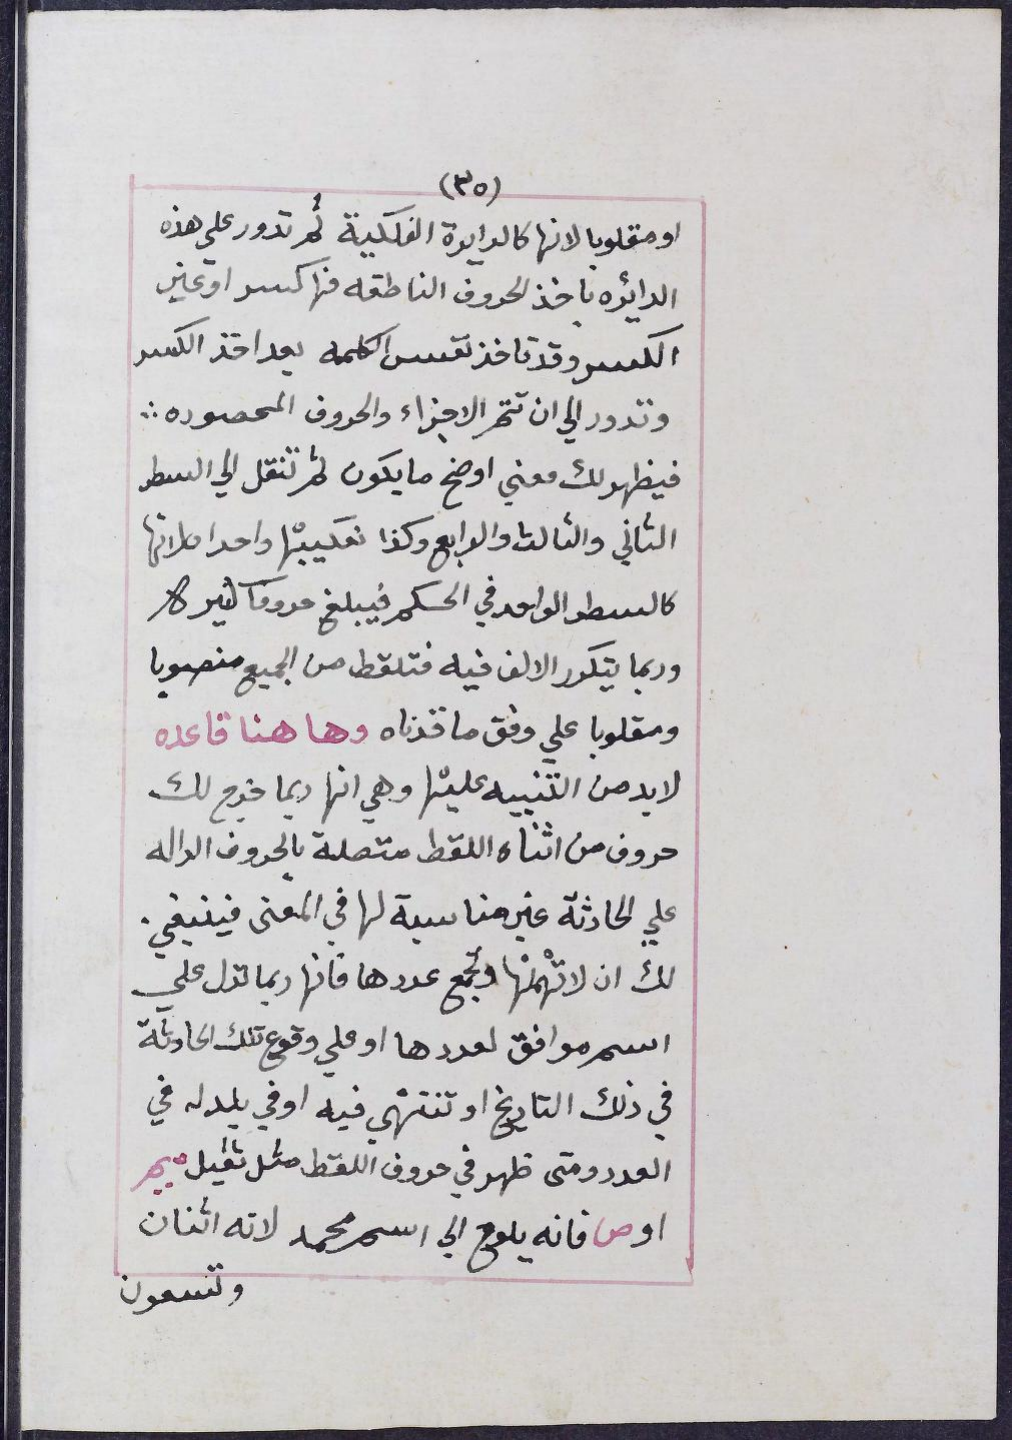 (٣٥)
او مقلوبا لانها كالدايرة الفلكية ثم تدور علي هذه
الدائره ياخذ الحروف الناطقه فها كسر او غير
الكسر وقد تاخذ نفس الكلمه بعد اخذ الكسر
وتدور الي ان تتم الاجزاء والحروف المحصوره
فيظهر لك معني اوضح ما يكون ثم تنقل الي السطر
الثاني والثالث والرابع وكذا تكييبها واحدا لانها
كالسطر الواحد في الحكم فيبلغ حروفا كثيرة
وربما يتكرر الالف فيه فتلقط من الجميع منصوبا
ومقلوبا علي وفق ما قدناه وها هنا قاعده
لابد من التنبيه عليها وهي انها ربما خرج لك
حروف من اثناء اللقط متصلة بالحروف الداله
علي الحادثة غير مناسبة لها في المعنى فينبغي
لك ان لا تهملها وتجمع عددها فانها ربما تدل علي
اسم موافق لعددها او علي وقوع تلك الحادثة
في ذلك التاريخ او تنتهي فيه او في بلد له في
العدد ومتى ظهر في حروف اللقط مثل ثقيل ميم
او ص فانه يلوح الي اسم محمد لانه اثنان
وتسعون